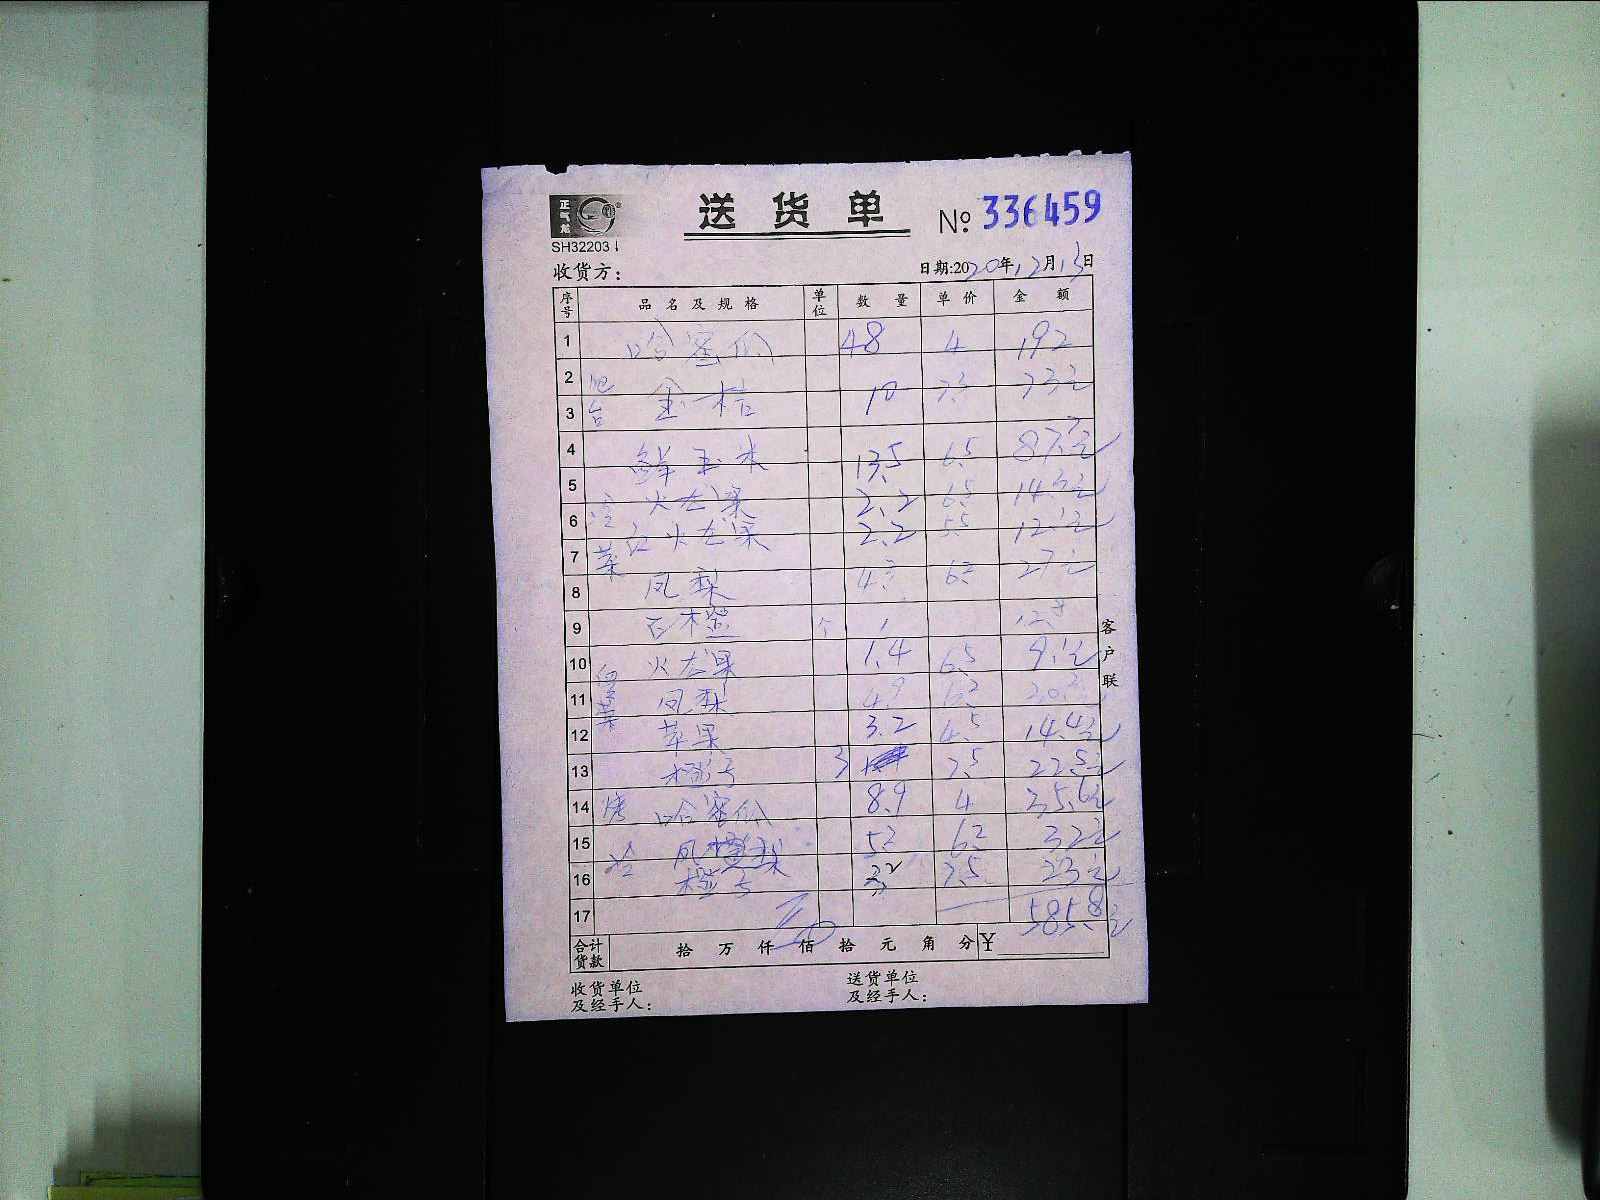 正气龙
SH32203
送货单 № 336459
收货方： 日期:2020年12月13日
序号 品名及规格 单位 数量 单价 金额
1 哈密瓜 48 4 192
2
吧台 金桔 10 7.3 73元
3
4 鲜玉米 13.5 6.5 87.7元
5 火龙果 2.2 6.5 14.3元
6 红火龙果 2.2 5.5 12.1元
冷菜
7
8 凤梨 4.3 6.2 27元
9 西橙 个 1 12.8
10 火龙果 1.4 6.5 9.1元
11 凤梨 4.9 6.2
12 苹果 3.2 4.5 14.4元
13 橙子 3 7.5 22.5元
14 哈密瓜 8.9 4 35.6元
15 冷 凤梨 5.2 6.2 32元
16 橙子 7.5 23元
17 585.8元
合计货款 拾 万 仟 佰 拾 元 角 分 ¥
收货单位及经手人： 送货单位及经手人：
客户联